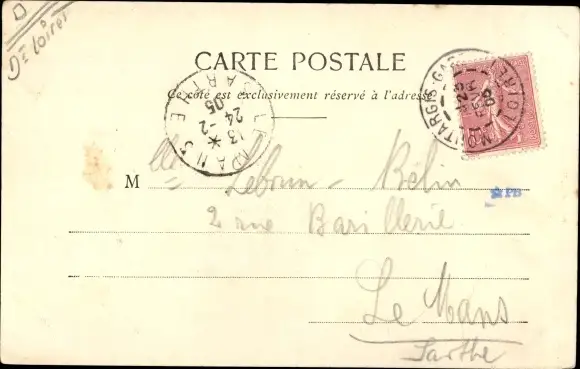 Dt Loiret
CARTE POSTALE
Ce côté est exclusivement réservé à l'adresse
MONTARGIS-GARE LOIRET
23 FEVR 05
LE MANS SARTHE
13 * 24 -2 05
M lle Lebrun - Bélin
PB
2 rue Barillerie
Le Mans
Sarthe